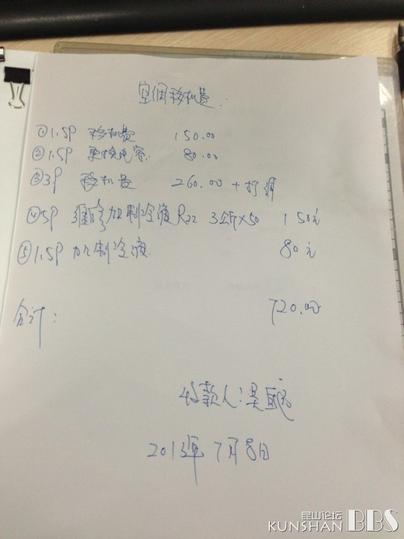 空调移机费:
①1.5P 移机费 150.00
②1.5P 更换电容 80.00
③3P 移机费 260.00 + 打洞
④5P 维修加制冷液R22 3公斤×50 150元
⑤1.5P 加制冷液 80元
合计: 720.00
收款人:吴
2013年7月8日
昆山论坛
KUNSHAN BBS